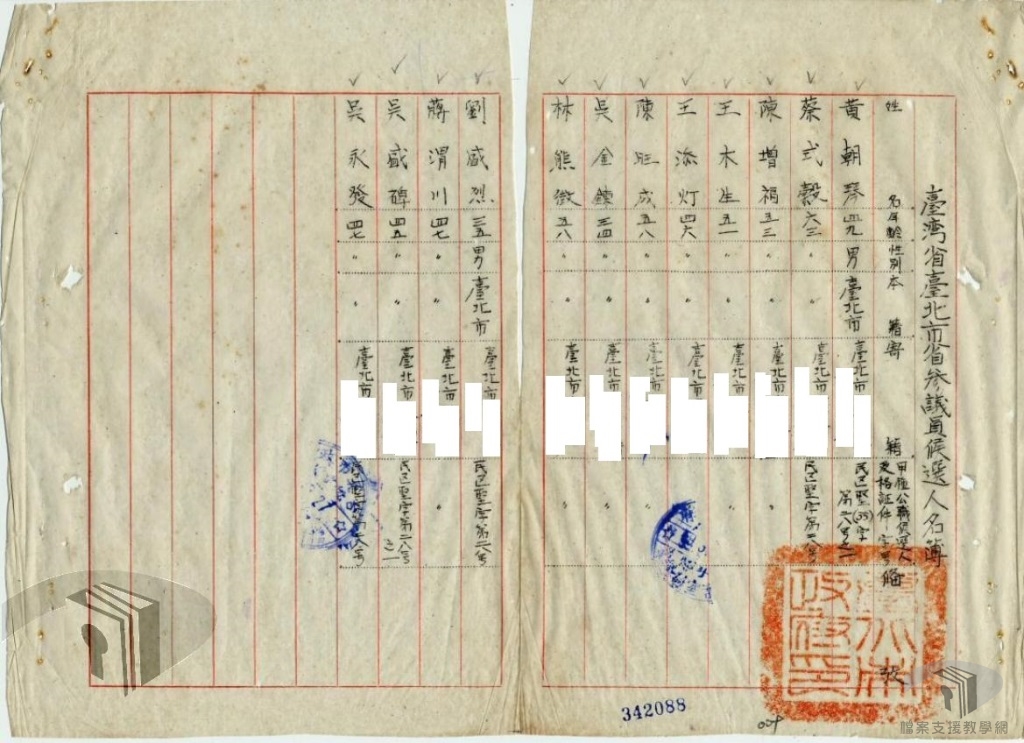 臺灣省臺北市省參議員候選人名簿
姓名 年齡 性別 本籍 寄籍 甲種公職候選人及格証件字号 備考
黃朝琴 四九 男 臺北市 臺北市 民區聖(35)字第二八号
蔡式穀 六三 〃 〃 臺北市
陳增福 五三 〃 〃 臺北市 〃
王木生 五一 〃 〃 臺北市 〃
王添灯 四六 〃 〃 臺北市 〃
陳旺成 五八 〃 〃 臺北市 〃
吳金鍊 三四 〃 〃 臺北市 〃
林熊徵 五八 〃 〃 臺北市 〃
劉盛烈 三五 男 臺北市 臺北市
蔣渭川 四七 〃 〃 臺北市 〃
吳盛碑 四五 〃 〃 臺北市
吳永發 四七 〃 〃 臺北市
342088
檔案支援教學網